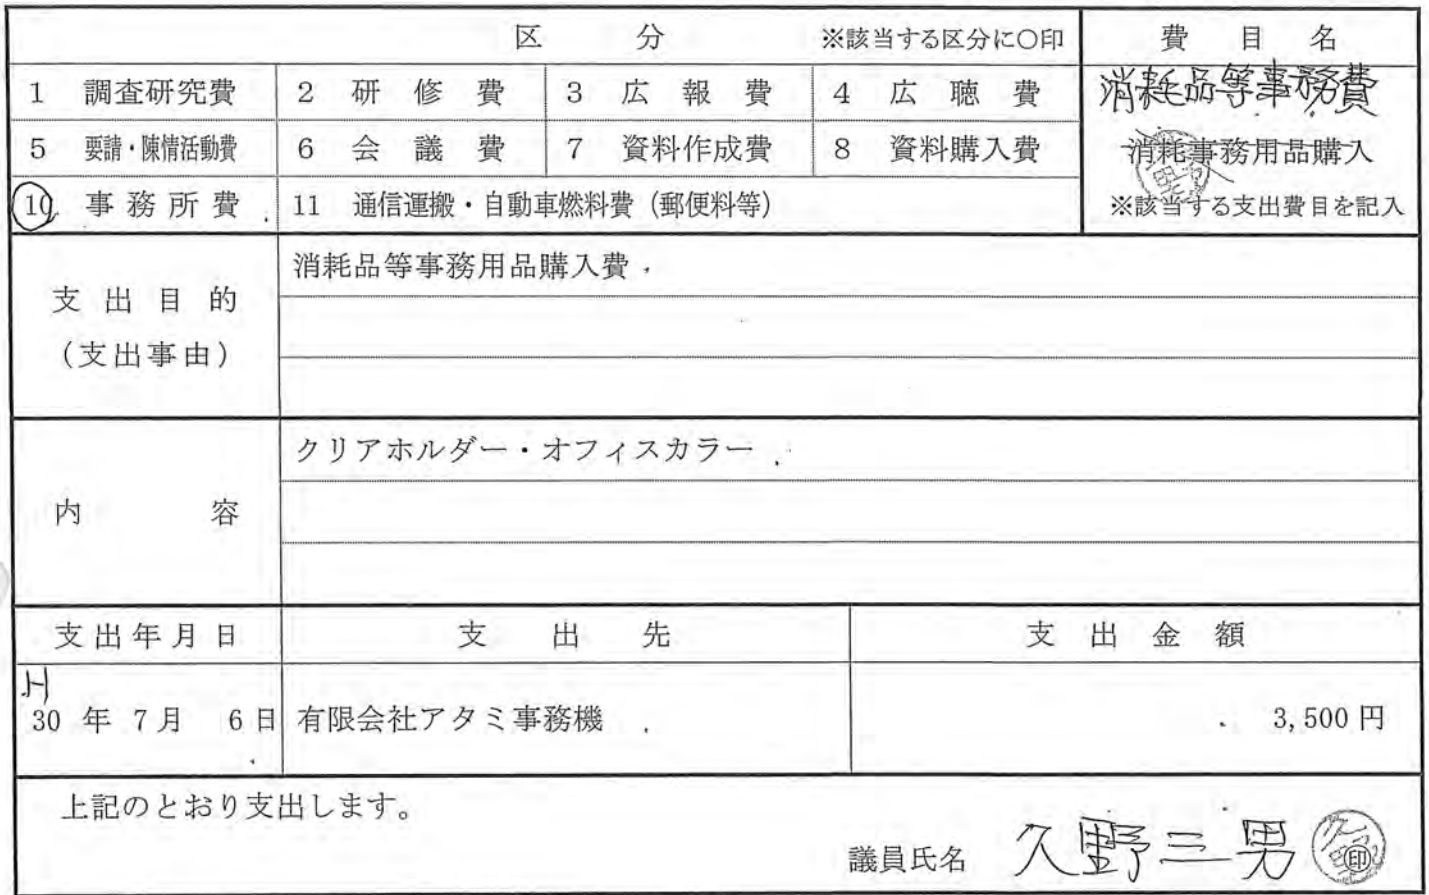 区 分 ※該当する区分に○印 費 目 名
1 調査研究費 2 研 修 費 3 広 報 費 4 広 聴 費 消耗品等事務費
5 要請・陳情活動費 6 会 議 費 7 資料作成費 8 資料購入費 消耗事務用品購入
10 事 務 所 費 11 通信運搬・自動車燃料費(郵便料等) ※該当する支出費目を記入
支 出 目 的
(支出事由)
消耗品等事務用品購入費
内 容
クリアホルダー・オフィスカラー
支出年月日 支 出 先 支 出 金 額
H
30 年 7月 6日 有限会社アタミ事務機 3,500 円
上記のとおり支出します。
議員氏名 久野三男 印